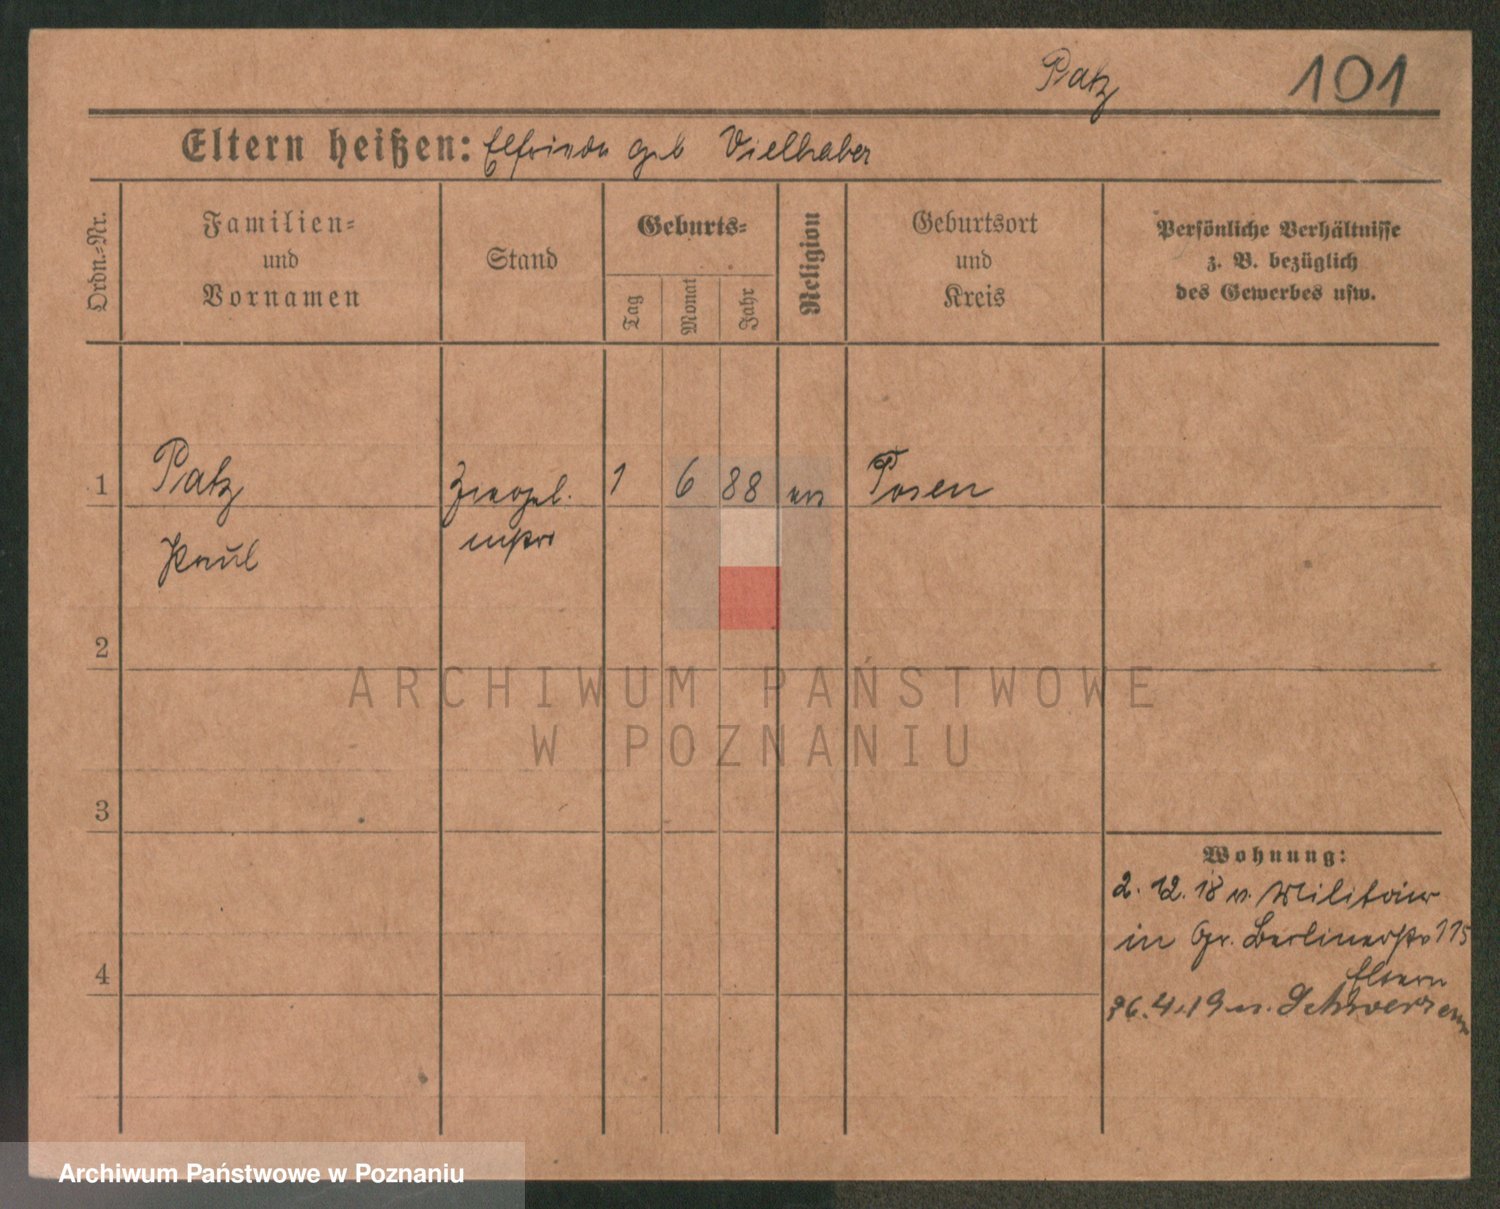 Patz 101
Eltern heißen: Elfriede geb Vielhaber
Ordn.-Nr.
Familien-
und
Vornamen
Stand
Geburts-
Tag
Monat
Jahr
Religion
Geburtsort
und
Kreis
Persönliche Verhältnisse
z. B. bezüglich
des Gewerbes usw.
1 Patz 1 6 88 Posen
Paul
2
3
4
Wohnung:
2. 12. 18 v. Militär
in Gr. Berlinerstr 115
Eltern
26.4.19 n. Schwersenz
ARCHIWUM PAŃSTWOWE
W POZNANIU
Archiwum Państwowe w Poznaniu